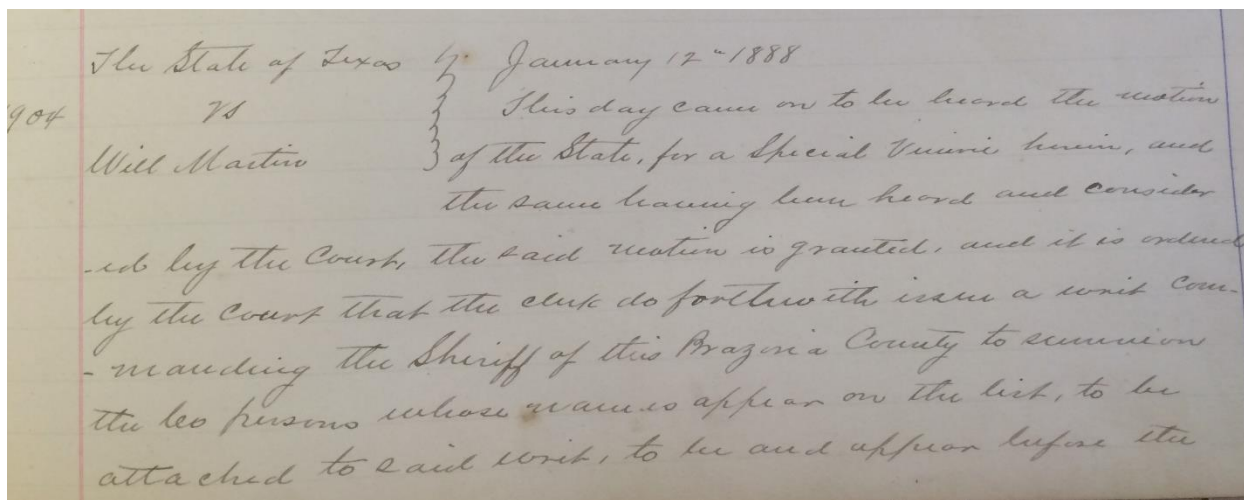 The State of Texas } January 12" 1888
1904 vs } This day came on to be heard the motion
Will Martin } of the State, for a Special Venire herein, and
the same having been heard and consider
-ed by the Court, the said motion is granted, and it is ordered
by the Court that the clerk do forthwith issue a writ com-
-manding the Sheriff of this Brazoria County to summon
the 60 persons whose names appear on the list, to be
attached to said writ, to be and appear before the